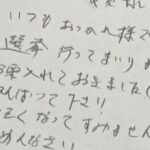 いつもおつかれ様で
選挙 行ってまいり
入れておきました
んばって下さい!
なって すみません
めんなさい